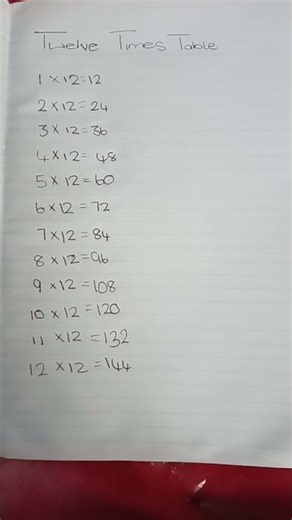 Twelve Times Table
1 × 12=12
2 × 12=24
3 × 12=36
4 × 12= 48
5 × 12=60
6 ×12 = 72
7 ×12 = 84
8 ×12=96
9 ×12 =108
10 × 12 =120
11 ×12 =132
12 ×12 =144